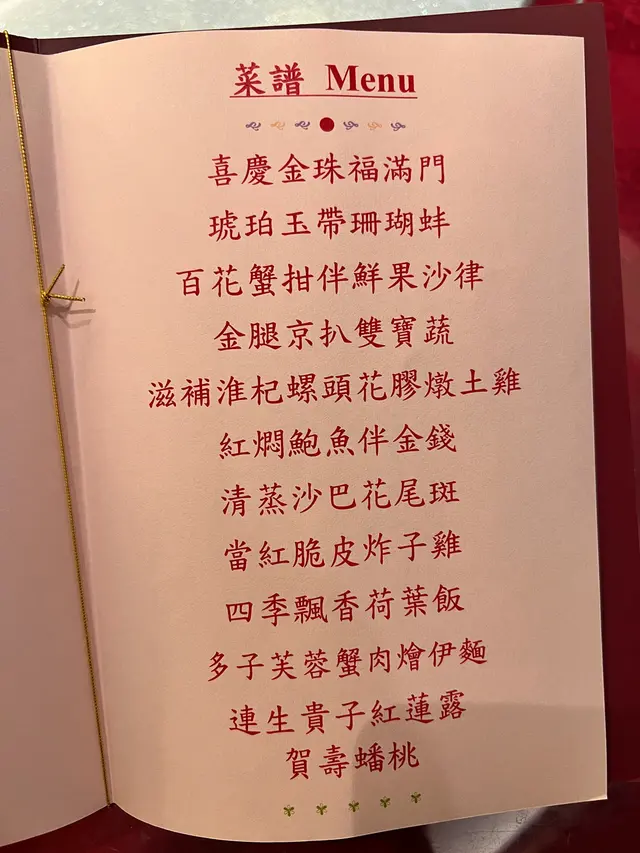 菜譜 Menu
喜慶金珠福滿門
琥珀玉帶珊瑚蚌
百花蟹拑伴鮮果沙律
金腿京扒雙寶蔬
滋補淮杞螺頭花膠燉土雞
紅燜鮑魚伴金錢
清蒸沙巴花尾斑
當紅脆皮炸子雞
四季飄香荷葉飯
多子芙蓉蟹肉燴伊麵
連生貴子紅蓮露
賀壽蟠桃